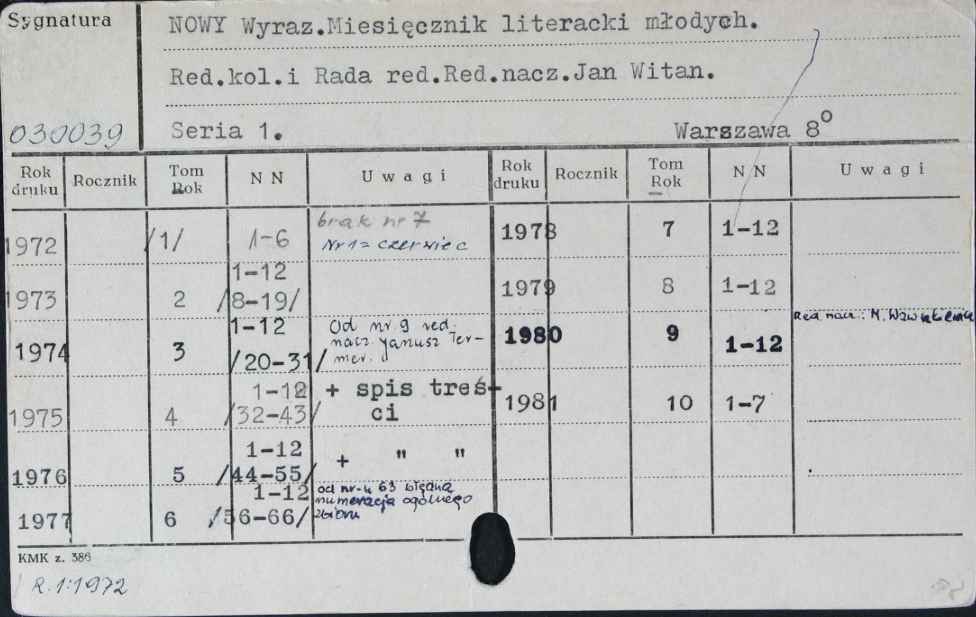 Sygnatura
NOWY Wyraz.Miesięcznik literacki młodych.
Red.kol.i Rada red.Red.nacz.Jan Witan.
030039 Seria 1. Warszawa 8°
Rok druku Rocznik Tom Rok NN Uwagi Rok druku Rocznik Tom Rok NN Uwagi
1972 /1/ 1-6 brak nr 7
Nr 1 = czerwiec
1978 7 1-12
1973 2 1-12
/8-19/
1979 8 1-12
1974 3 1-12
/20-31/
Od nr. 9 red.
nacz. Janusz Ter-
mer.
1980 9 1-12 Red nacz: M.
1975 4 1-12
/32-43/
+ spis treś-
ci
1981 10 1-7
1976 5 1-12
/44-55/
+ " "
1977 6 1-12
/56-66/
od nr-u 63 błędna
numeracja ogólnego
zbioru
KMK z. 386
R.1:1972